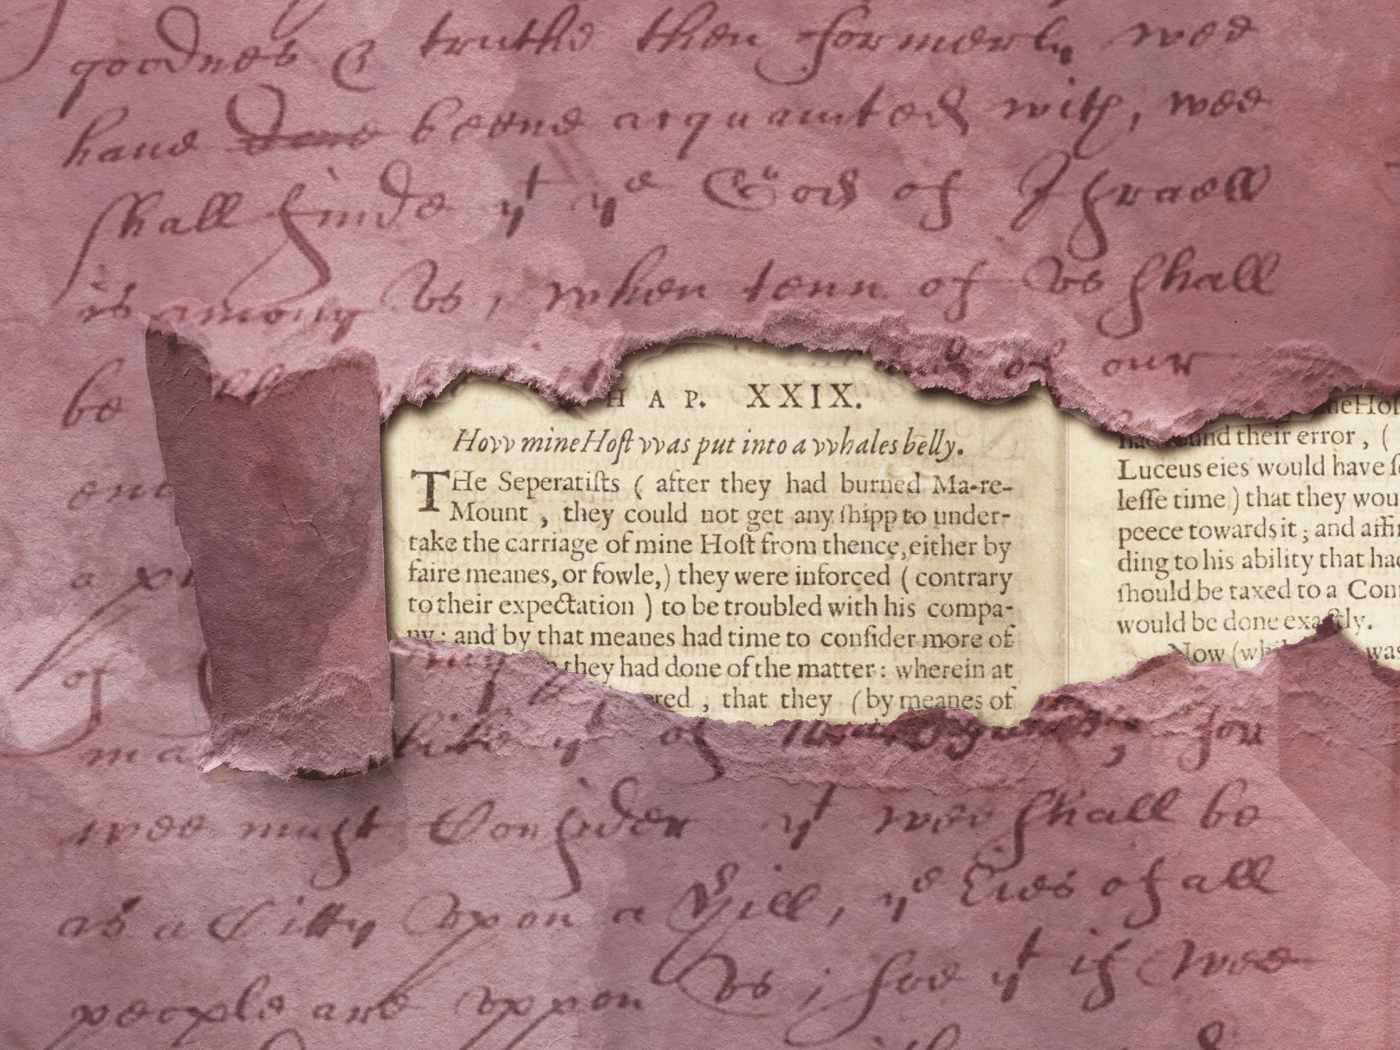 goodnes & truthe then formerly wee
haue done beene acquainted with, wee
shall finde yt ye God of Israell
is among vs, when tenn of vs shall
be
our
H A P. XXIX.
Hovv mine Hoſt vvas put into a vvhales belly.
THe Seperatiſts ( after they had burned Ma-re-
Mount , they could not get any ſhipp to under-
take the carriage of mine Hoſt from thence, either by
faire meanes, or fowle,) they were inforced ( contrary
to their expectation ) to be troubled with his compa-
ny : and by that meanes had time to conſider more of
they had done of the matter : wherein at
red , that they ( by meanes of
neHoſ
had found their error , (
Luceus eies would have ſ
leſſe time ) that they wou
peece towards it ; and aſſi
ding to his ability that had
ſhould be taxed to a Com
would be done exactly.
Now (whi was
of
ma yt of for
wee must Consider yt wee shall be
as a Citty vpon a Hill, ye Eies of all
people are vppon vs; soe yt if wee